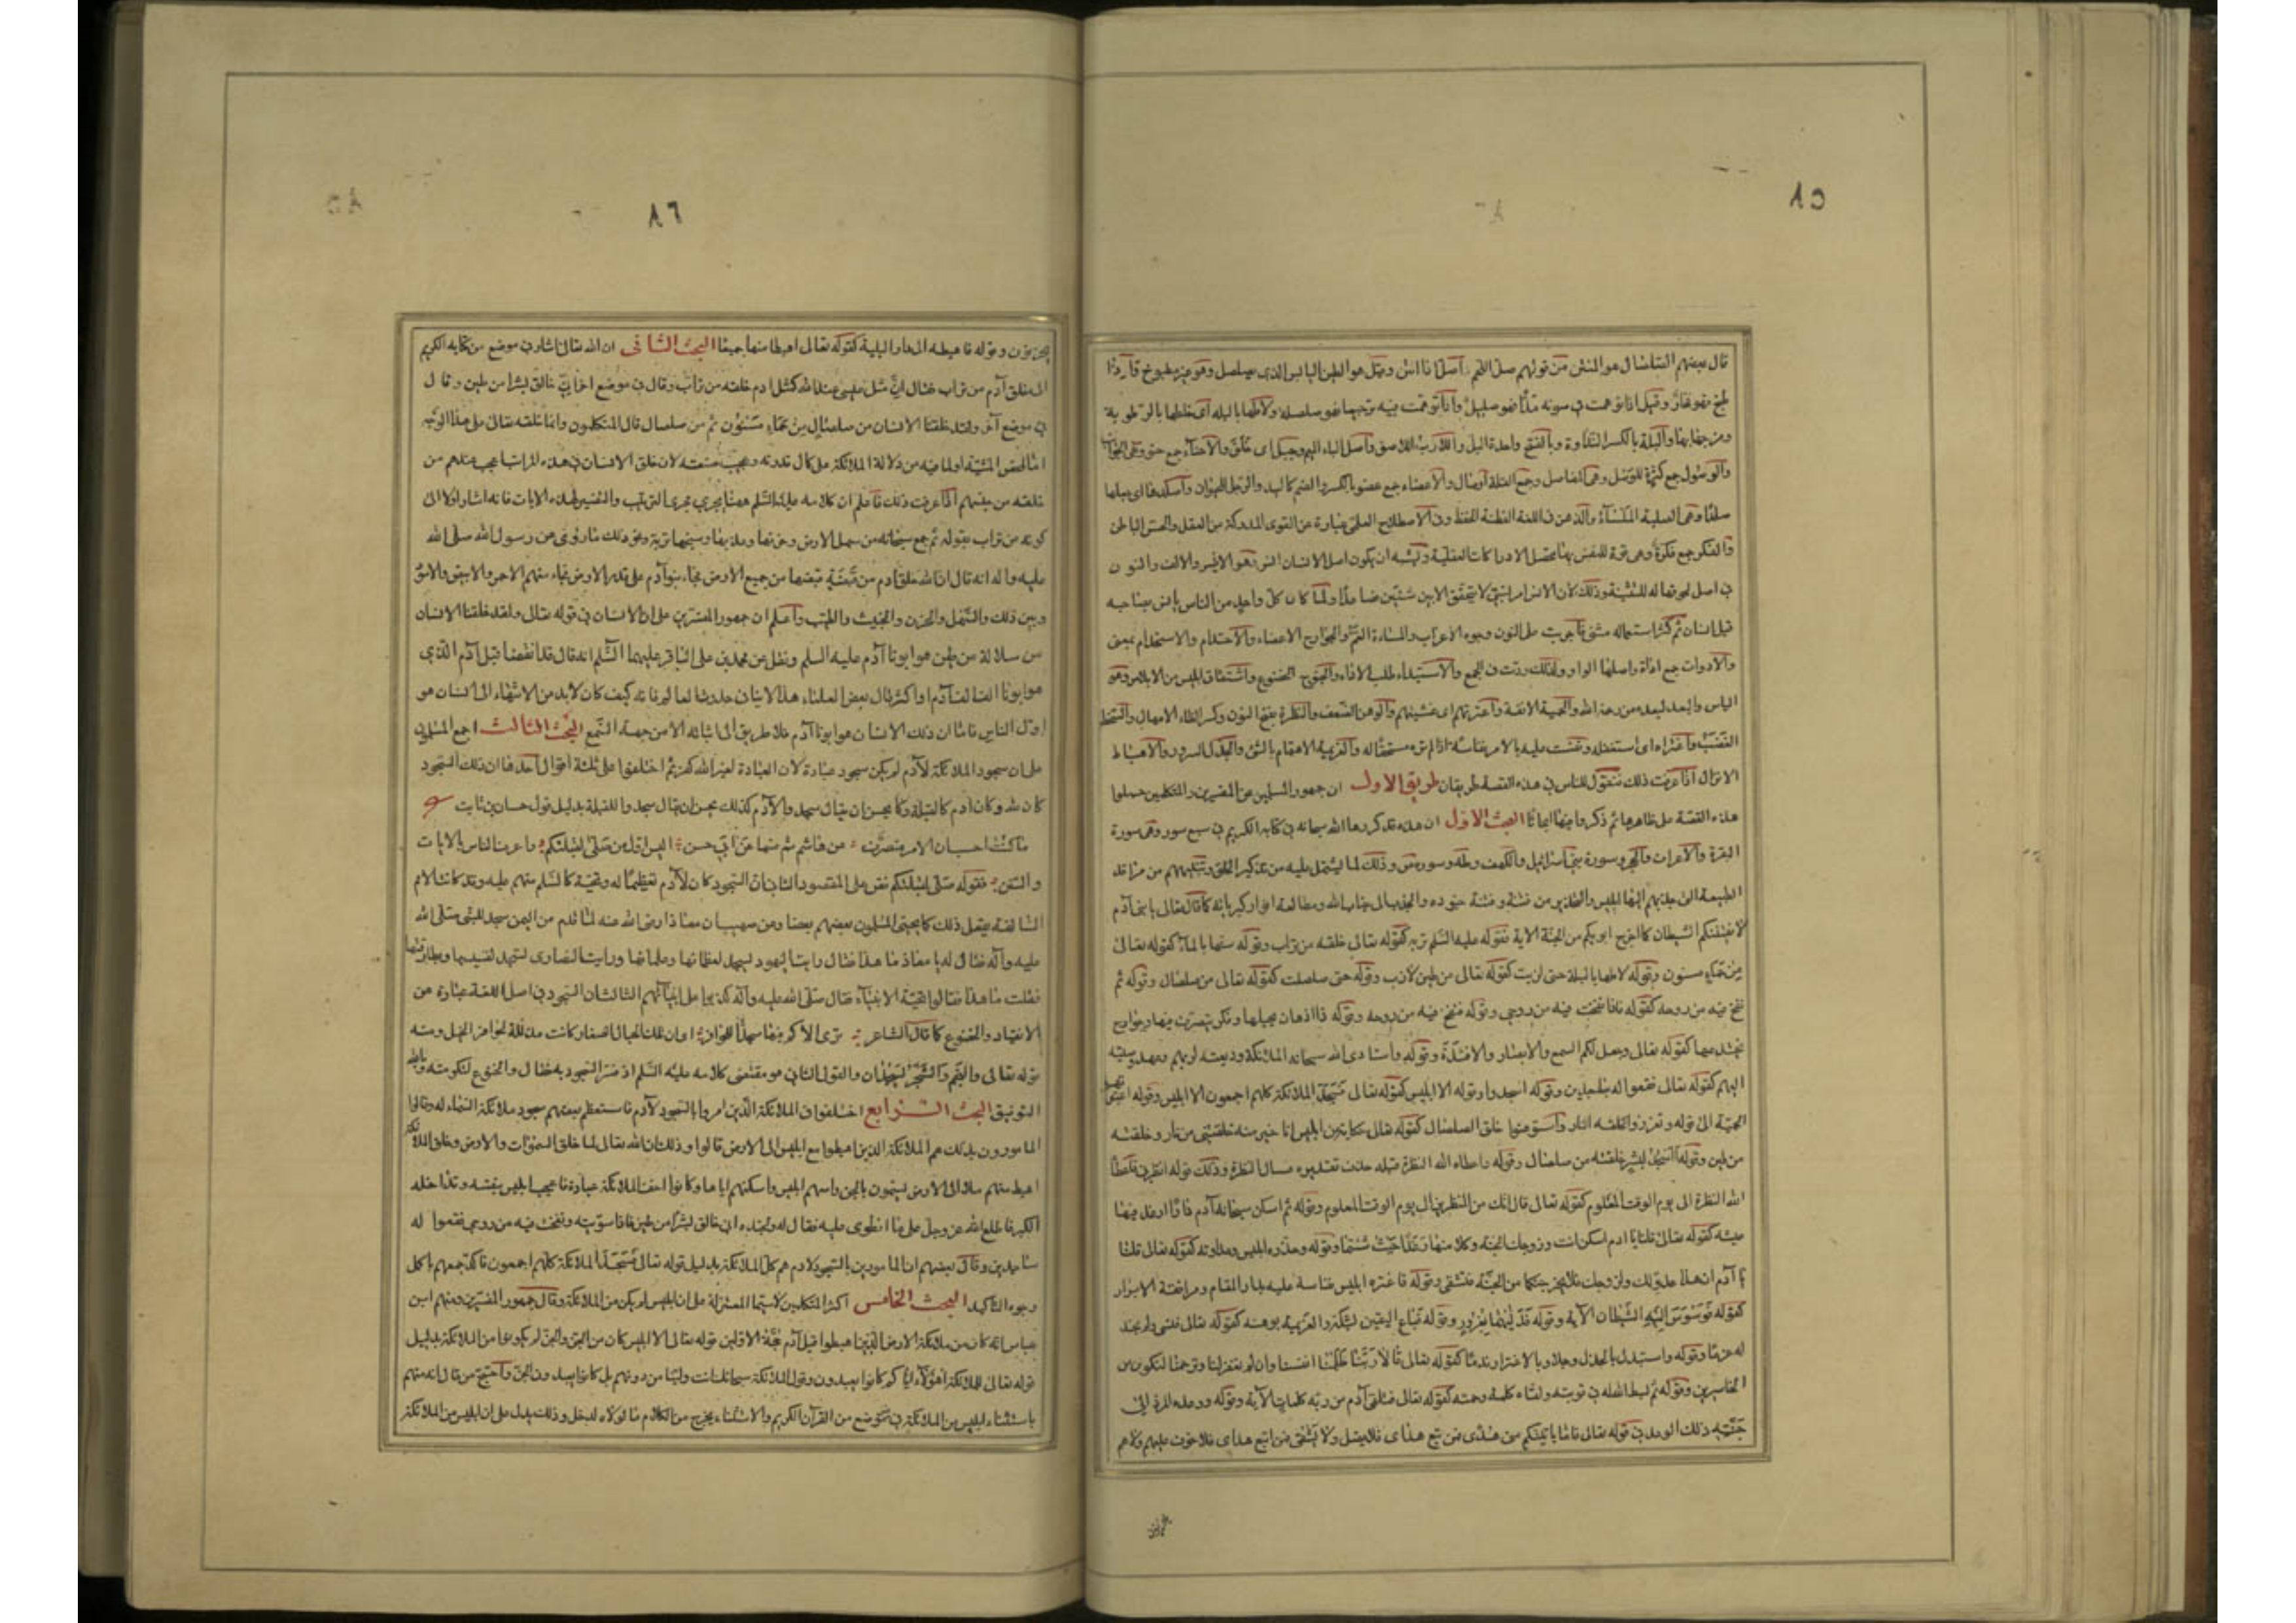 ٨٥
قال بعضهم الصلصال هو المنتن من قولهم صل اللحم و اصل اذا انتن وقيل هو الطين اليابس الذى يصلصل وهو غير مطبوخ فاذا
طبخ فهو فخار وقيل اذا توهمت فى صوته مدًّا فهو صليل وإذا توهمت فيه ترجيعا فهو صلصلة ولاطها بالبلة اى خلطها بالرطوبة
والبلة بالكسر النداوة وبالفتح واحدة البل واللازب اللاصق واصل الباء الميم وجبل اى خلق والاحناء جمع حنو وهى الجوانب
والوصول جمع كثرة للوصل وهى المفاصل وجمع القلة اوصال والاعضاء جمع عضو بالكسر والضم كاليد والرجل للحيوان وأصلدها اى جعلها
صلدا وهى الصلبة الملساء والذهن فى اللغة الفطنة والحفظ وفى الاصطلاح العلمى عبارة عن القوى المدركة من العقل والحس الباطن
والفكر جمع فكرة وهى قوة للنفس بها يحصل الادراكات العقلية ويشبه ان يكون اصل الانسان انس وهو الانيس والالف والنون
فى اصل لحوقها له للتثنية وذلك لان الانس امر نسبى لا يتحقق الا بين شيئين فصاعدًا ولما كان كل واحد من الناس يانس بصاحبه
قيل انسان ثم كثر استعماله مثنى فاجريت على النون وجوه الاعراب والمساءة الغم والجوارح الاعضاء والاختدام والاستخدام بمعنى
والادوات جمع اداة واصلها الواو ولذلك ردت فى الجمع والاستيداء طلب الاداء والخنوع الخضوع واشتقاق ابليس من الابلاس وهو
الياس والبعد لبعده من رحمة الله والحمية الانفة واعترتهم اى غشيتهم والوهن الضعف والنظرة بفتح النون وكسر الظاء الامهال والسخط
الغضب واغتره اى استغفله ونفست عليه بالامر نفاسة اذا لم تره مستحقا له والعزيمة الاهتمام بالشئ والجذل السرور والاهباط
الانزال اذا عرفت ذلك فنقول للناس فى هذه القصة طريقان طريق الاول ان جمهور المسلمين من المفسرين والمتكلمين حملوا
هذه القصة على ظاهرها ثم ذكروا فيها ابحاثا البحث الاول ان هذه قد كررها الله سبحانه فى كتابه الكريم فى سبع سور وهى سورة
البقرة والاعراف والحجر وسورة بنى اسرائيل والكهف وطه وسورة ص وذلك لما يشتمل عليه من تذكير الخلق وتنبيههم من مراقد
الطبيعة التى جذبهم اليها ابليس والتحذير من فتنته وفتنة جنوده والجذب الى جناب الله ومطالعة انوار كبريائه كما قال تعالى يا بنى آدم
لا يفتننكم الشيطان كما اخرج ابويكم من الجنة الاية فقوله عليه السلم تربة كقوله تعالى خلقه من تراب وقوله سنها بالماء كقوله تعالى
من حماء مسنون وقوله لاطها بالبلة حتى لزبت كقوله تعالى من طين لازب وقوله حتى صلصلت كقوله تعالى من صلصال وقوله ثم
نفخ فيه من روحه كقوله فاذا نفخت فيه من روحى وقوله فنفخ فيه من روحه وقوله ذا اذهان يجيلها وفكر يتصرف فيها وجوارح
يختدمها كقوله تعالى وجعل لكم السمع والابصار والافئدة وقوله واستادى الله سبحانه الملائكة وديعته لديهم وعهد وصيته
اليهم كقوله تعالى فقعوا له ساجدين وقوله اسجدوا وقوله الا ابليس كقوله تعالى فسجد الملائكة كلهم اجمعون الا ابليس وقوله اعترتهم
الحمية الى قوله وتعززوا بخلقة النار واستوهنوا خلق الصلصال كقوله تعالى حكاية عن ابليس انا خير منه خلقتنى من نار وخلقته
من طين وقوله أأسجد لبشر خلقته من صلصال وقوله واعطاه الله النظرة قبله حذف تقديره فسال النظرة وذلك قوله انظرنى فاعطاه
الله النظرة الى يوم الوقت المعلوم كقوله تعالى قال انك من المنظرين الى يوم الوقت المعلوم وقوله ثم اسكن سبحانه آدم دارا ارغد فيها
عيشه كقوله تعالى قلنا يا ادم اسكن انت وزوجك الجنة وكلا منها رغدا حيث شئتما وقوله وحذره ابليس وعداوته كقوله تعالى قلنا
يا آدم ان هذا عدو لك ولزوجك فلا يخرجنكما من الجنة فتشقى وقوله فاغتره ابليس نفاسة عليه بدار المقام ومرافقة الابرار
كقوله فوسوس اليه الشيطان الآية وقوله فدليهما بغرور وقوله فباع اليقين بشكه والعزيمة بوهنه كقوله تعالى فنسى ولم نجد
له عزما وقوله واستبدل بالجذل وجلا وبالاغترار ندما كقوله تعالى قالا ربنا ظلمنا انفسنا وان لم تغفر لنا وترحمنا لنكونن من
الخاسرين وقوله ثم بسط الله له فى توبته ولقاه كلمة رحمته كقوله تعالى فتلقى آدم من ربه كلمات الآية وقوله ووعده المرد الى
جنته وذلك الوعد فى قوله تعالى فاما ياتينكم منى هدى فمن تبع هداى فلا يضل ولا يشقى فمن اتبع هداى فلا خوف عليهم ولا هم
٨٦
يحزنون وقوله فاهبطه الى دار البلية كقوله تعالى اهبطا منها جميعا البحث الثانى ان الله تعالى اشار فى موضع من كتابه الكريم
الى خلق آدم من تراب فقال ان مثل عيسى عند الله كمثل ادم خلقه من تراب وقال فى موضع اخر انى خالق بشرا من طين وقال
فى موضع آخر ولقد خلقنا الانسان من صلصال من حماء مسنون ثم من صلصال قال المتكلمون وانما خلقه تعالى على هذا الوجه
اما لمحض المشية او لما فيه من دلالة الملائكة على كمال قدرته وعجيب صنعته لان خلق الانسان فى هذه المراتب اعجب عندهم من
خلقه من جنسهم اذا عرفت ذلك فاعلم ان كلامه عليه السلم ههنا يجرى مجرى الترتيب والتفسير لهذه الايات فانه اشار اولا الى
كونه من تراب بقوله ثم جمع سبحانه من سهل الارض وحزنها وعذبها وسبخها تربة ونحو ذلك ما روى عن رسول الله صلى الله
عليه واله انه قال ان الله خلق ادم من قبضة قبضها من جميع الارض فجاء بنو آدم على قدر الارض فجاء منهم الاحمر والابيض والاسود
وبين ذلك والسهل والحزن والخبيث والطيب واعلم ان جمهور المفسرين على ان الانسان فى قوله تعالى ولقد خلقنا الانسان
من سلالة من طين هو ابونا آدم عليه السلم ونقل عن محمد بن على الباقر عليهما السلم انه قال قد انقضى قبل آدم الذى
هو ابونا الف الف آدم او اكثر قال بعض العلماء هذا لا ينافى حدوث العالم فانه كيف كان لابد من الانتهاء الى انسان هو
اول الناس فاما ان ذلك الانسان هو ابونا آدم فلا طريق الى اثباته الا من جهة السمع البحث الثالث اجمع المسلمون
على ان سجود الملائكة لآدم لم يكن سجود عبادة لان العبادة لغير الله كفر ثم اختلفوا على ثلثة اقوال احدها ان ذلك السجود
كان لله وكان ادم كالقبلة وكما يحسن ان يقال سجدوا لآدم كذلك يحسن ان يقال سجدوا للقبلة بدليل قول حسان بن ثابت
ما كنت احسب ان الامر منصرف من هاشم ثم منها عن ابى حسن اليس اول من صلى لقبلتكم واعرف الناس بالايات
والسنن فقوله صلى لقبلتكم نص على المقصود الثانى ان السجود كان لآدم تعظيما له وتحية كالسلم منهم عليه وقد كانت الامم
السالفة يفعل ذلك كما يحيى المسلمون بعضهم بعضا وعن صهيب ان معاذا رضى الله عنه لما قدم من اليمن سجد للنبى صلى الله
عليه وآله فقال له يا معاذ ما هذا فقال رايت اليهود تسجد لعظمائها وعلمائها ورايت النصارى تسجد لقسيسها وبطارقتها
فقلت ما هذا فقالوا تحية الانبياء فقال صلى الله عليه وآله كذبوا على انبيائهم الثالث ان السجود فى اصل اللغة عبارة عن
الانقياد والخضوع كما قال الشاعر ترى الاكم فيها سجدا للحوافر اى ان تلك الجبال الصغار كانت مذللة لحوافر الخيل ومنه
قوله تعالى والنجم والشجر يسجدان والقول الثانى هو مقتضى كلامه عليه السلم اذ فسر السجود به فقال والخنوع لتكرمته وبالله
التوفيق البحث الرابع اختلفوا فى الملائكة الذين امروا بالسجود لآدم فاستعظم بعضهم سجود ملائكة السماء له وقالوا
المامورون بذلك هم الملائكة الذين اهبطوا مع ابليس الى الارض قالوا وذلك ان الله تعالى لما خلق السموات والارض وخلق الملائكة
اهبط منهم ملاء الى الارض يسمون بالجن وراسهم ابليس واسكنهم اياها وكانوا اخف الملائكة عبادة فاعجب ابليس بنفسه وتداخله
الكبر فاطلع الله عز وجل على ما انطوى عليه فقال له ولجنده انى خالق بشرا من طين فاذا سويته ونفخت فيه من روحى فقعوا له
ساجدين وقال بعضهم ان المامورين بالسجود لادم هم كل الملائكة بدليل قوله تعالى فسجد الملائكة كلهم اجمعون فاكد جمعهم باكمل
وجوه التاكيد البحث الخامس اكثر المتكلمين لاسيما المعتزلة على ان ابليس لم يكن من الملائكة وقال جمهور المفسرين ومنهم ابن
عباس انه كان من ملائكة الارض الذين اهبطوا قبل آدم حجة الاولين قوله تعالى الا ابليس كان من الجن والجن لم يكونوا من الملائكة بدليل
قوله تعالى للملائكة اهؤلاء اياكم كانوا يعبدون وقول الملائكة سبحانك انت ولينا من دونهم بل كانوا يعبدون الجن واحتج من قال انه منهم
باستثناء ابليس من الملائكة فى موضع من القرآن الكريم والاستثناء يخرج من الكلام ما لولاه لدخل وذلك يدل على ان ابليس من الملائكة